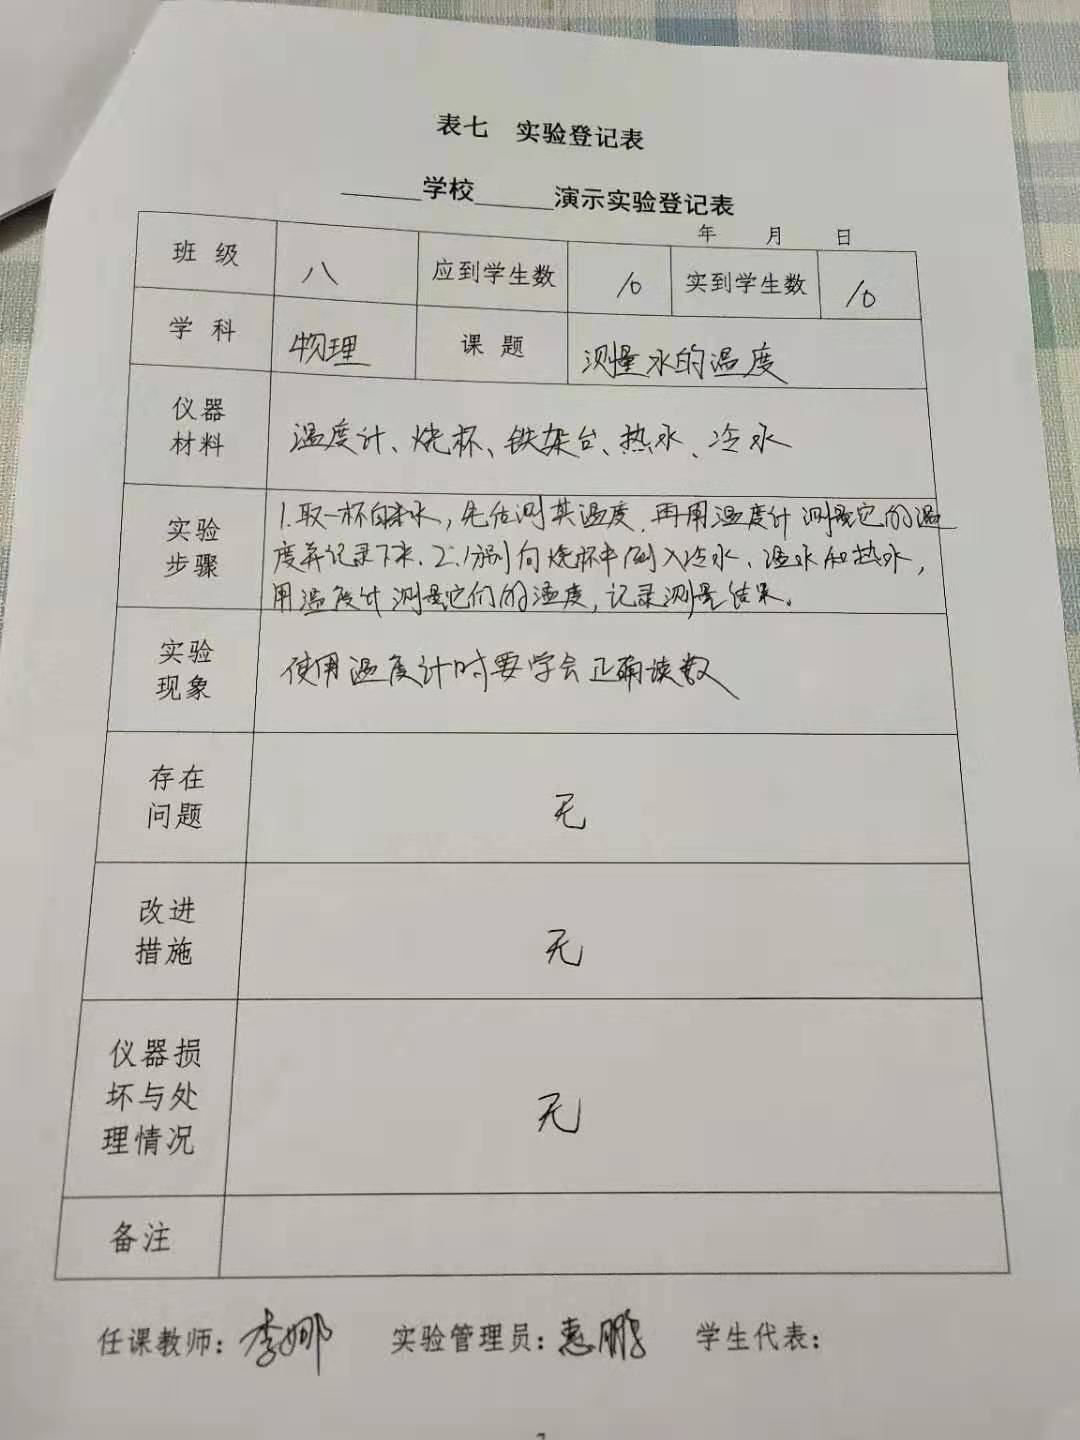 表七 实验登记表
______学校______演示实验登记表
年 月 日
班 级 八 应到学生数 10 实到学生数 10
学 科 物理 课 题 测量水的温度
仪器
材料
温度计、烧杯、铁架台、热水、冷水
实验
步骤
1.取一杯自来水，先估测其温度，再用温度计测量它的温
度并记录下来．2.分别向烧杯中倒入冷水、温水和热水，
用温度计测量它们的温度，记录测量结果。
实验
现象
使用温度计时要学会正确读数
存在
问题
无
改进
措施
无
仪器损
坏与处
理情况
无
备注
任课教师：李娜 实验管理员：惠鹏 学生代表：